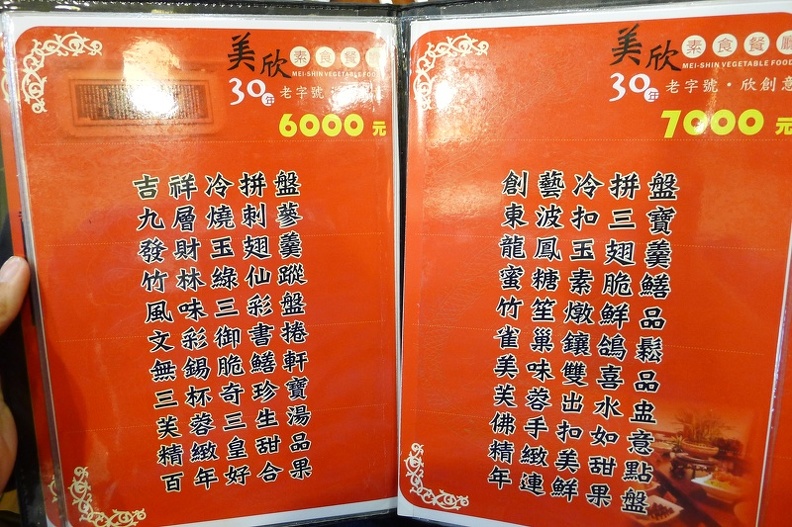 美欣 素食餐
MEI-SHIN VEGETABLE FOOD
30年 老字號
6000元
吉祥冷拼盤
九層燒刺蔘
發財玉翅羹
竹林綠仙蹤
風味三彩盤
文彩御書捲
無錫脆鱔軒
三杯奇珍寶
芙蓉三生湯
精緻皇甜品
百年好合果
美欣 素食餐廳
MEI-SHIN VEGETABLE FOOD
30年 老字號・欣創意
7000元
創藝冷拼盤
東波扣三寶
龍鳳玉翅羹
蜜糖素脆鱔
竹笙燉鮮品
雀巢鑲鴿鬆
美味雙喜品
芙蓉出水盅
佛手扣如意
精緻美甜點
年連鮮果盤